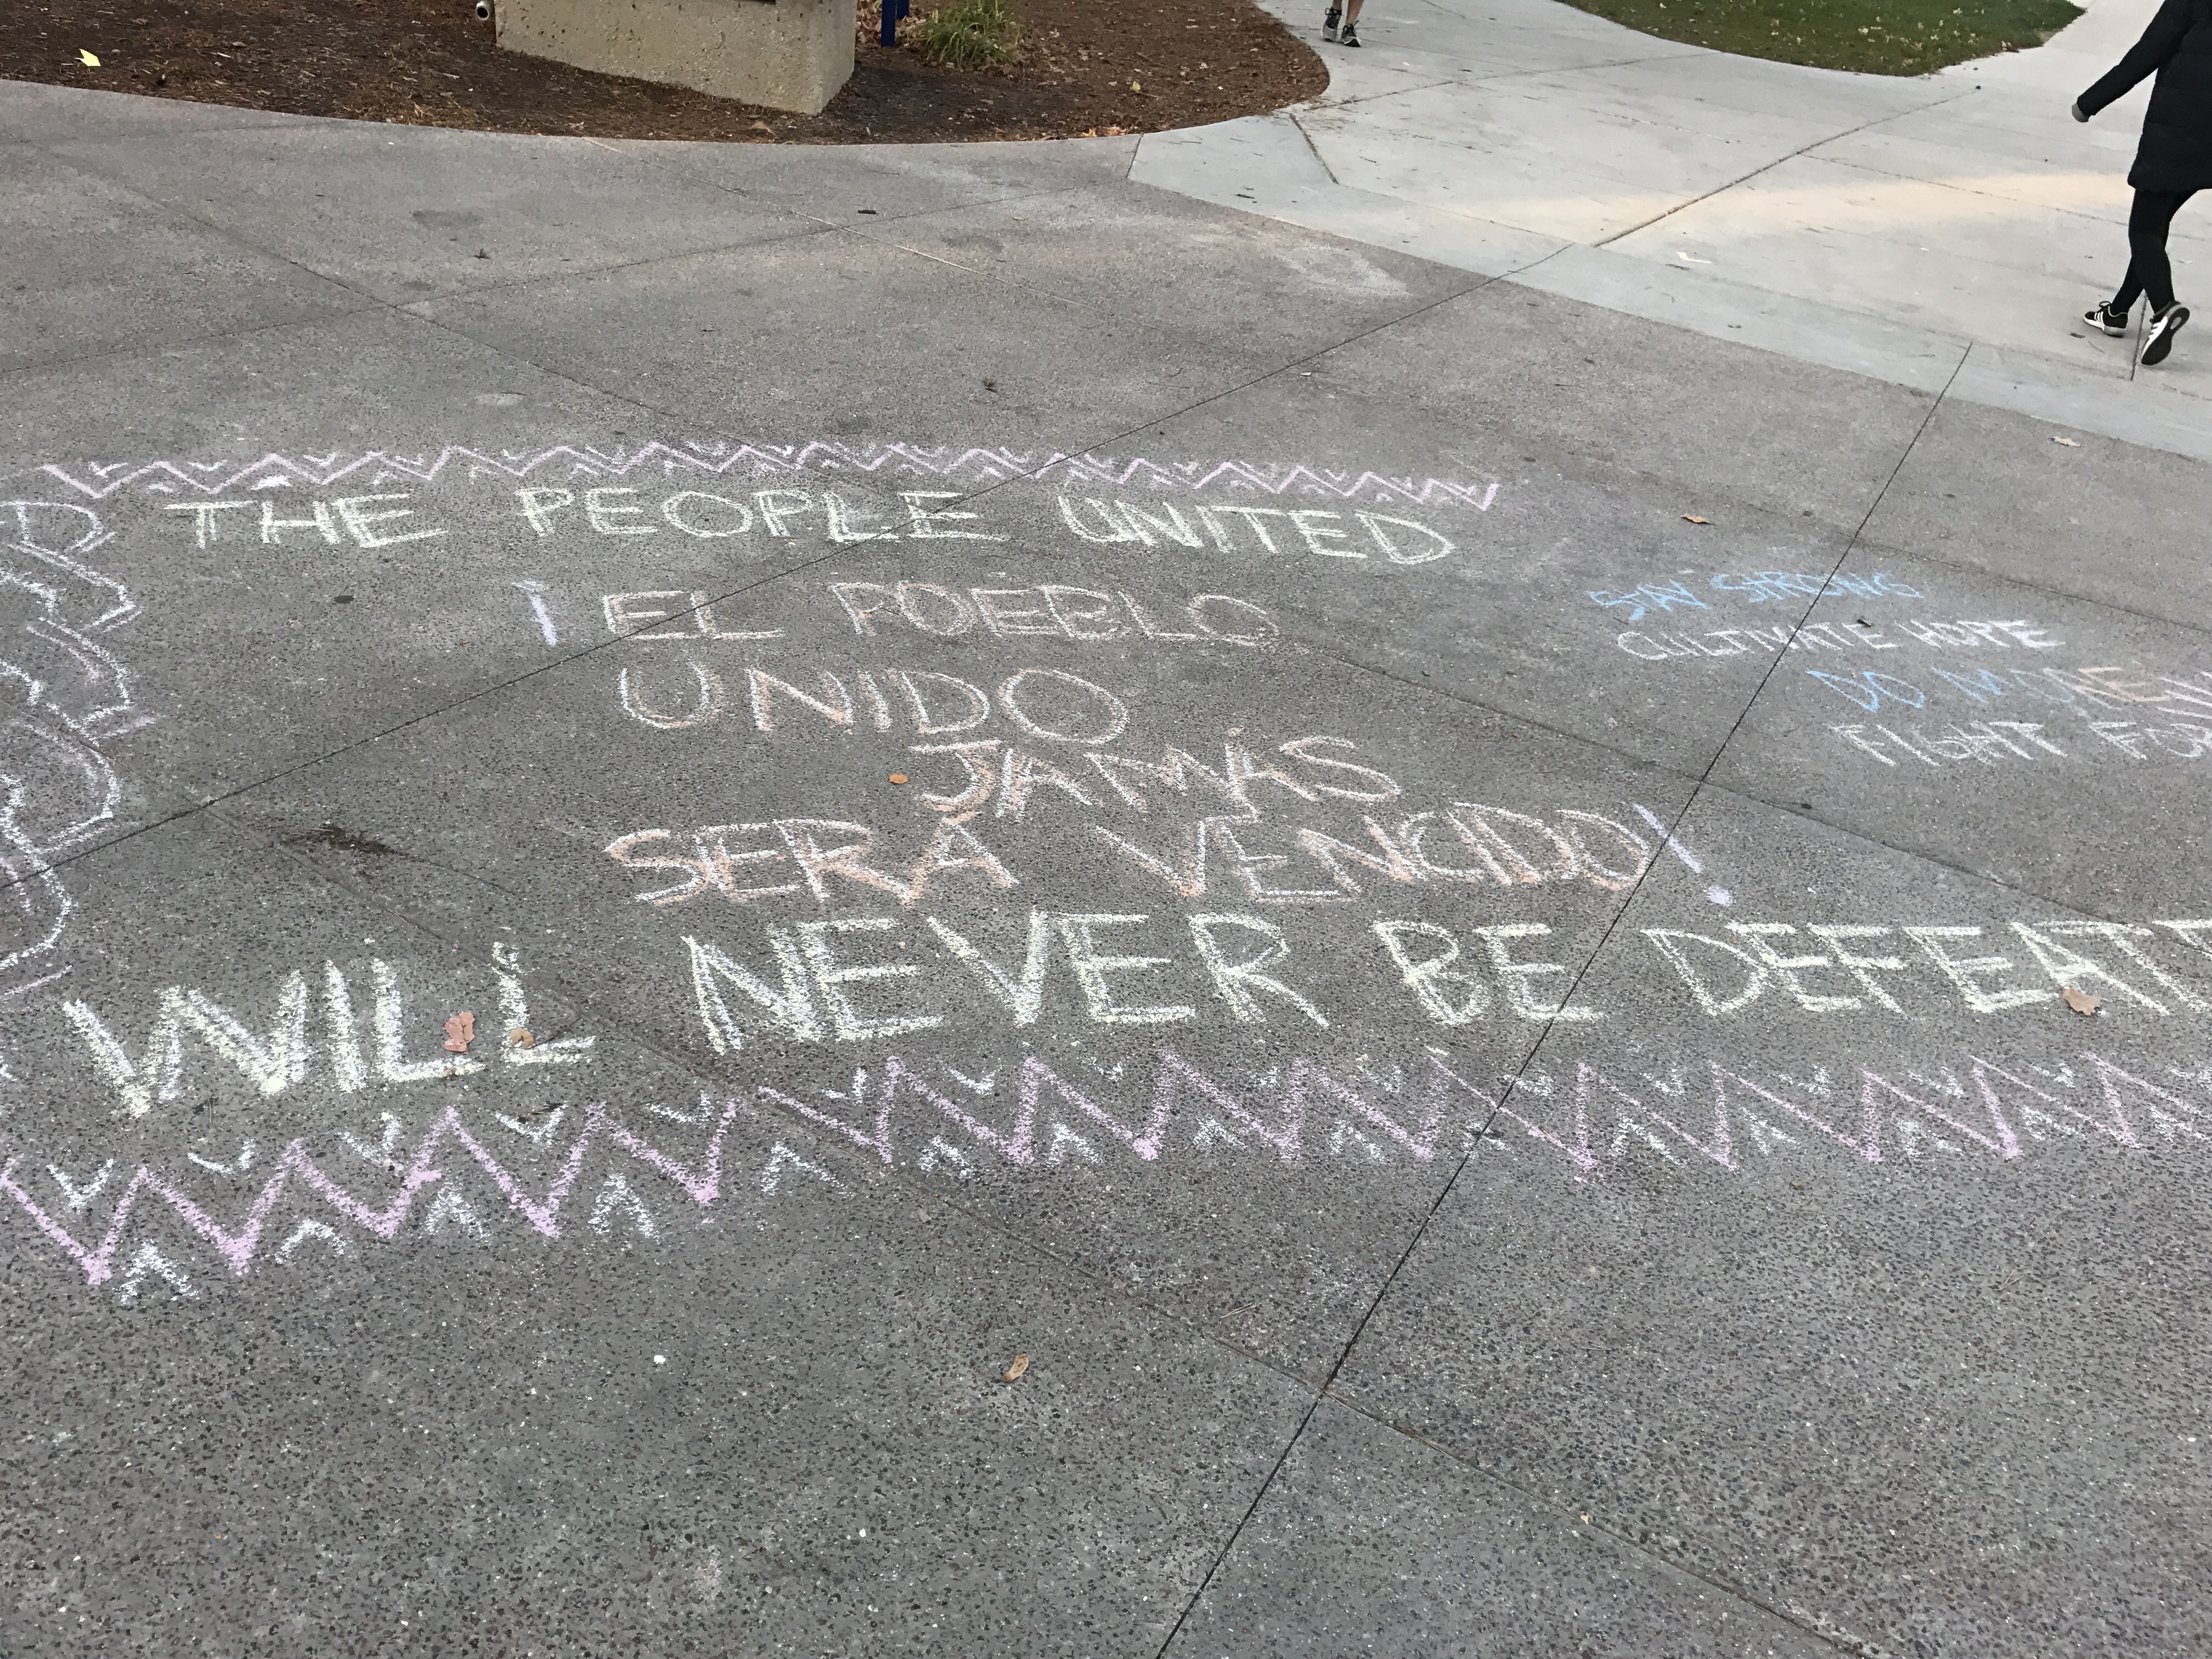 THE PEOPLE UNITED
¡EL POEBLO
UNIDO
JAMÁS
SERÁ VENCIDO!
WILL NEVER BE DEFEATE
STAY STRONG
CULTIVATE HOPE
DO MORE
FIGHT FOR